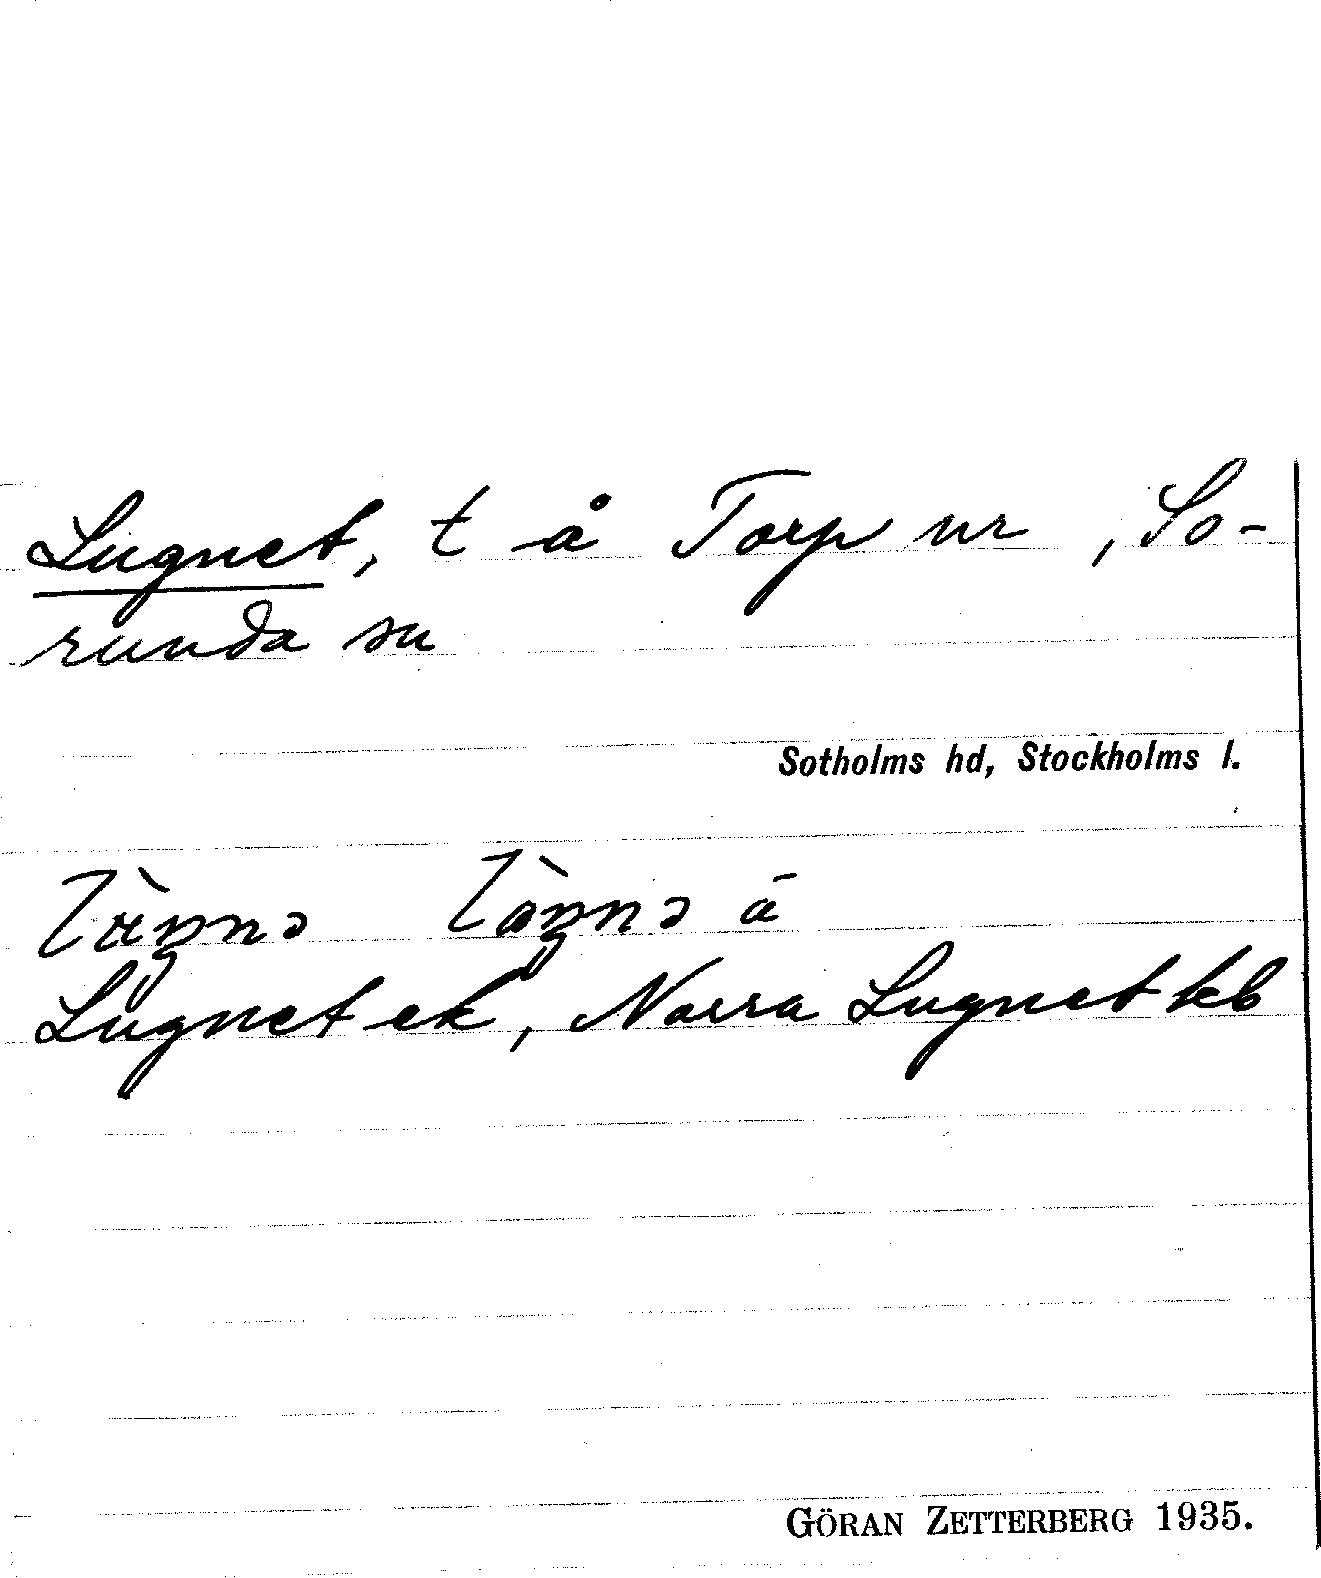 Lugnet, t å Torp nr , So-
runda sn
Sotholms hd, Stockholms l.
Lugnet ek, Norra Lugnet kb
GÖRAN ZETTERBERG 1935.